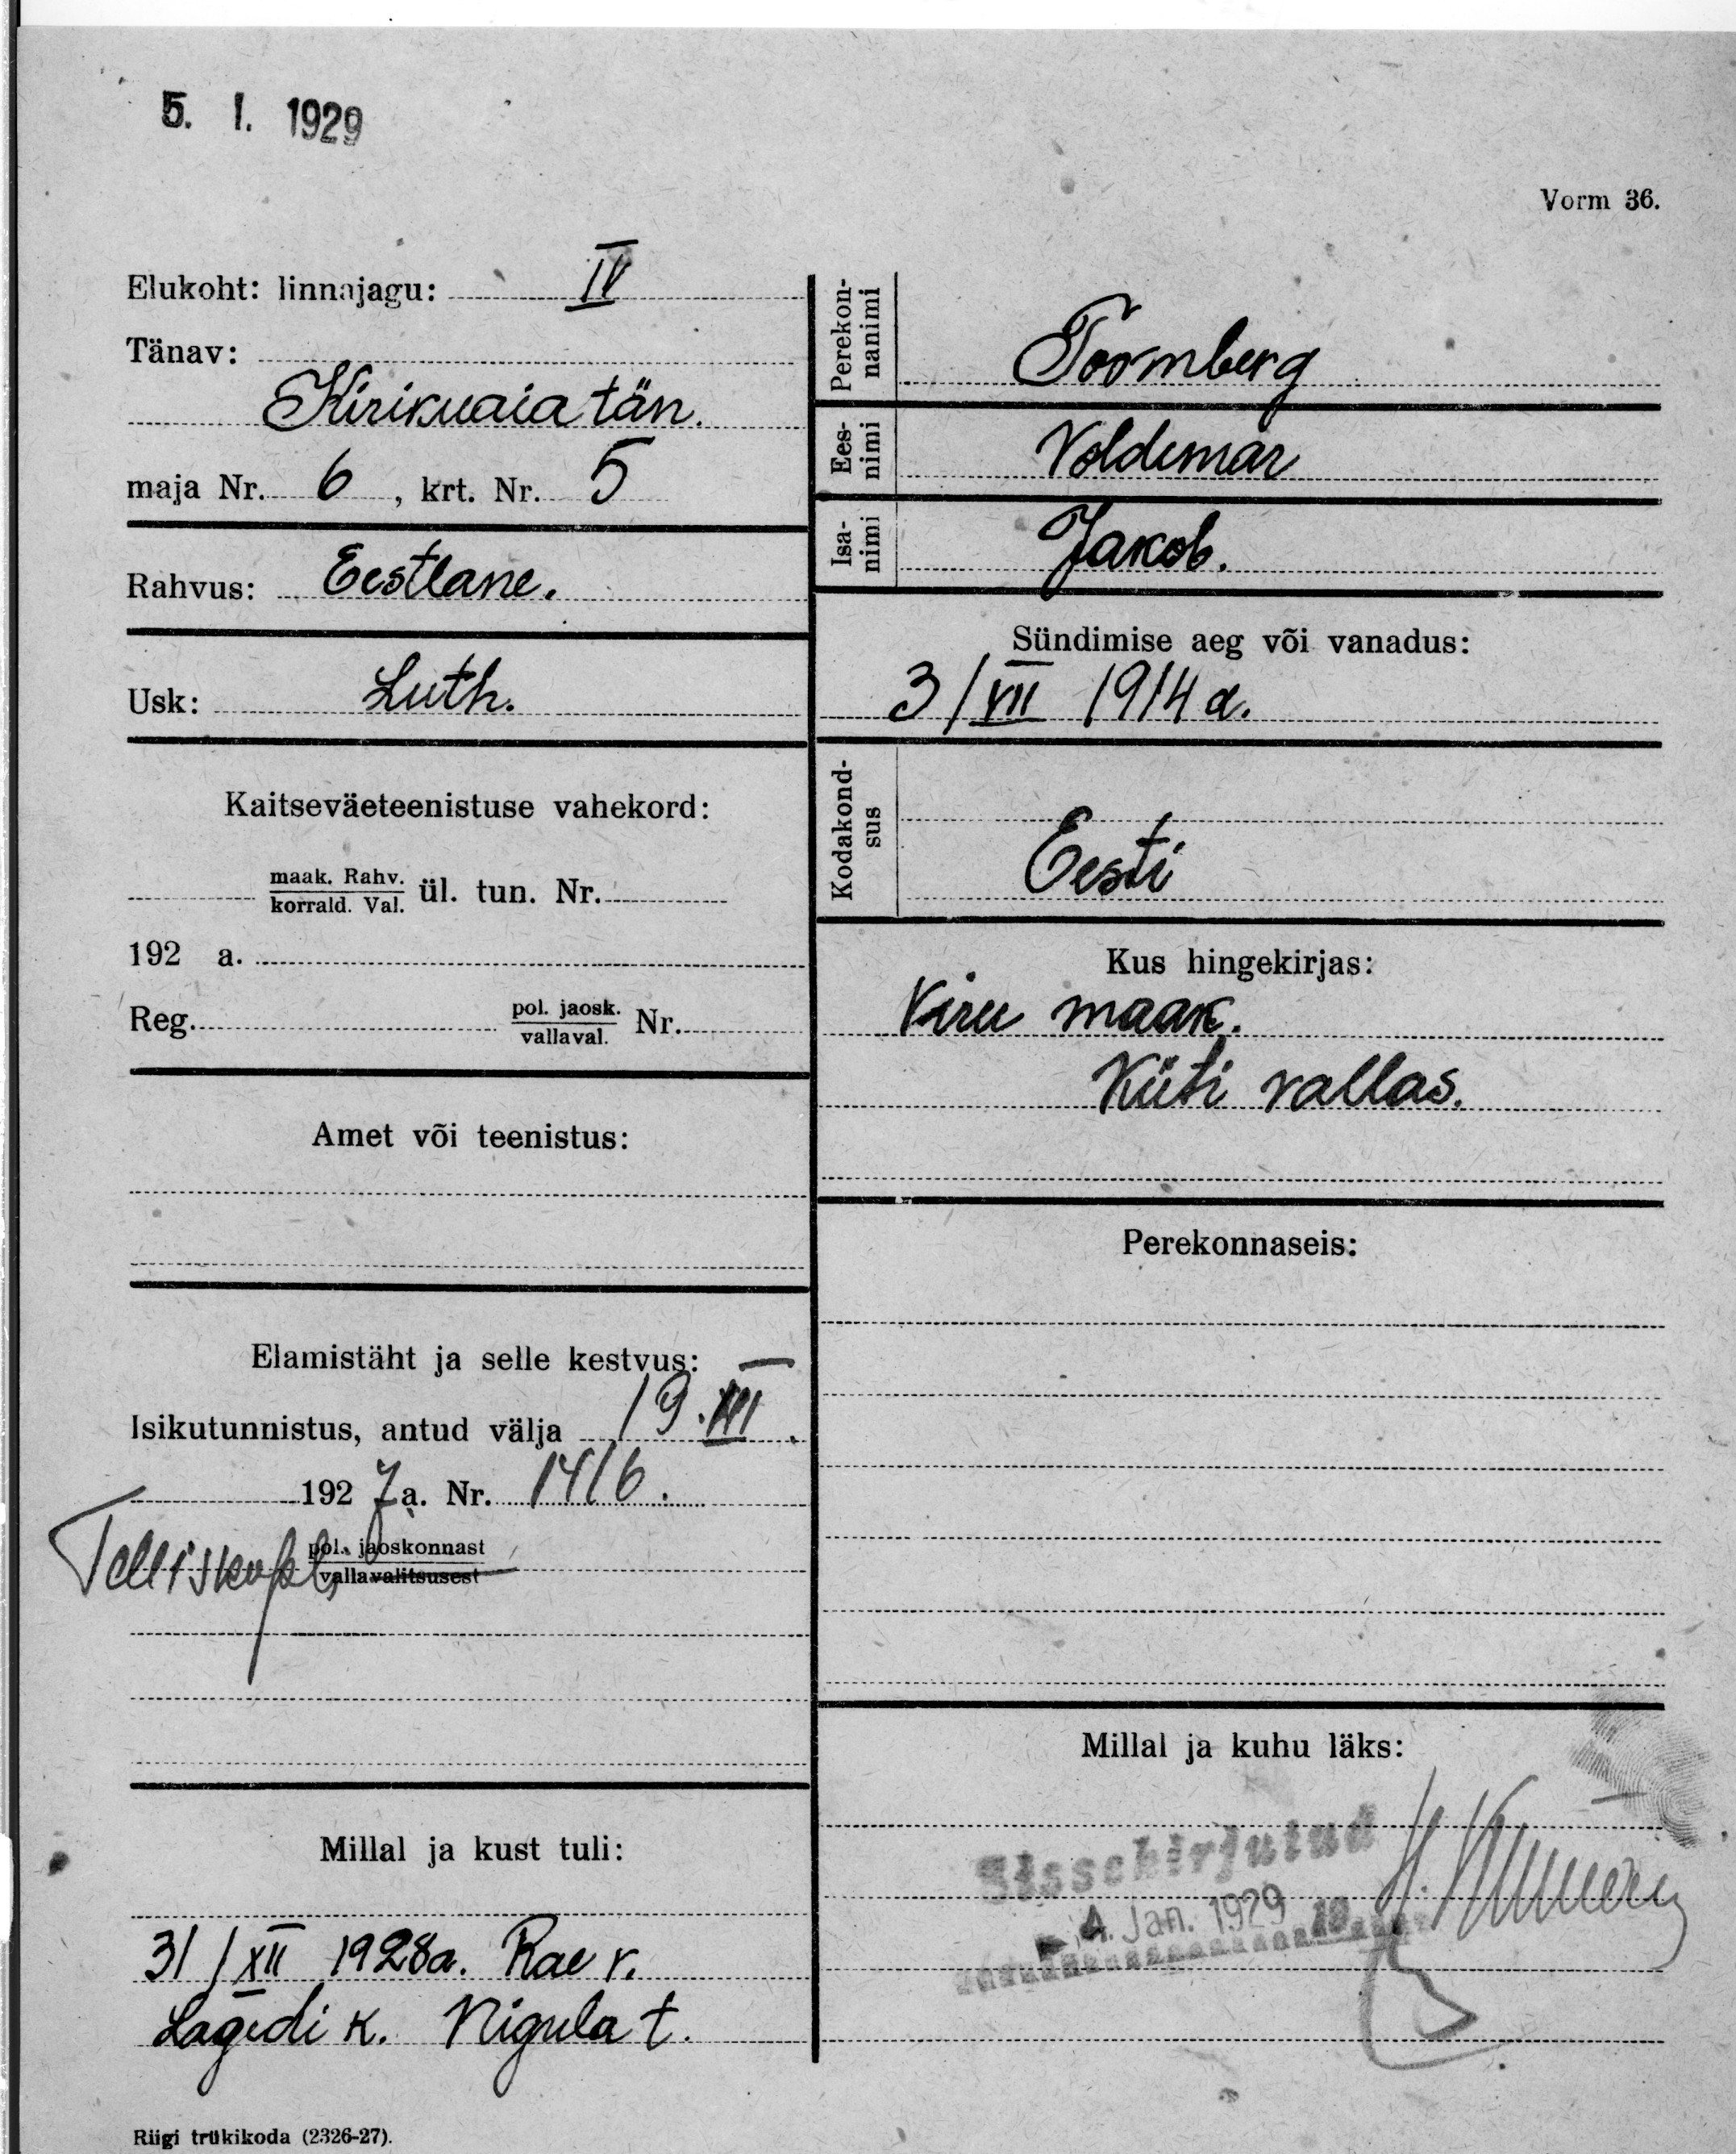 5. I. 1929
Vorm 36.
Elukoht: linnajagu: IV
Tänav:
Kirikuaia tän.
maja Nr. 6, krt. Nr. 5
Rahvus: Eestlane.
Usk: Luth.
Kaitseväeteenistuse vahekord:
maak. Rahv.
korrald. Val. ül. tun. Nr.
192 a.
Reg. pol. jaosk.
vallaval. Nr.
Amet või teenistus:
Elamistäht ja selle kestvus: —
Isikutunnistus, antud välja 19. III.
192 7 a. Nr. 1416.
Telliskopli pol. jaoskonnast
vallavalitsusest
Millal ja kust tuli:
31/XII 1928a. Rae v.
Lagedi k. Nigula t.
Riigi trükikoda (2326-27).
Perekon-
nanimi Toomberg
Ees-
nimi Voldemar
Isa-
nimi Jakob.
Sündimise aeg või vanadus:
3/VII 1914 a.
Kodakond-
sus Eesti
Kus hingekirjas:
Viru maak.
Küti vallas.
Perekonnaseis:
Millal ja kuhu läks:
Sissekirjutud
4. Jan. 1929 19